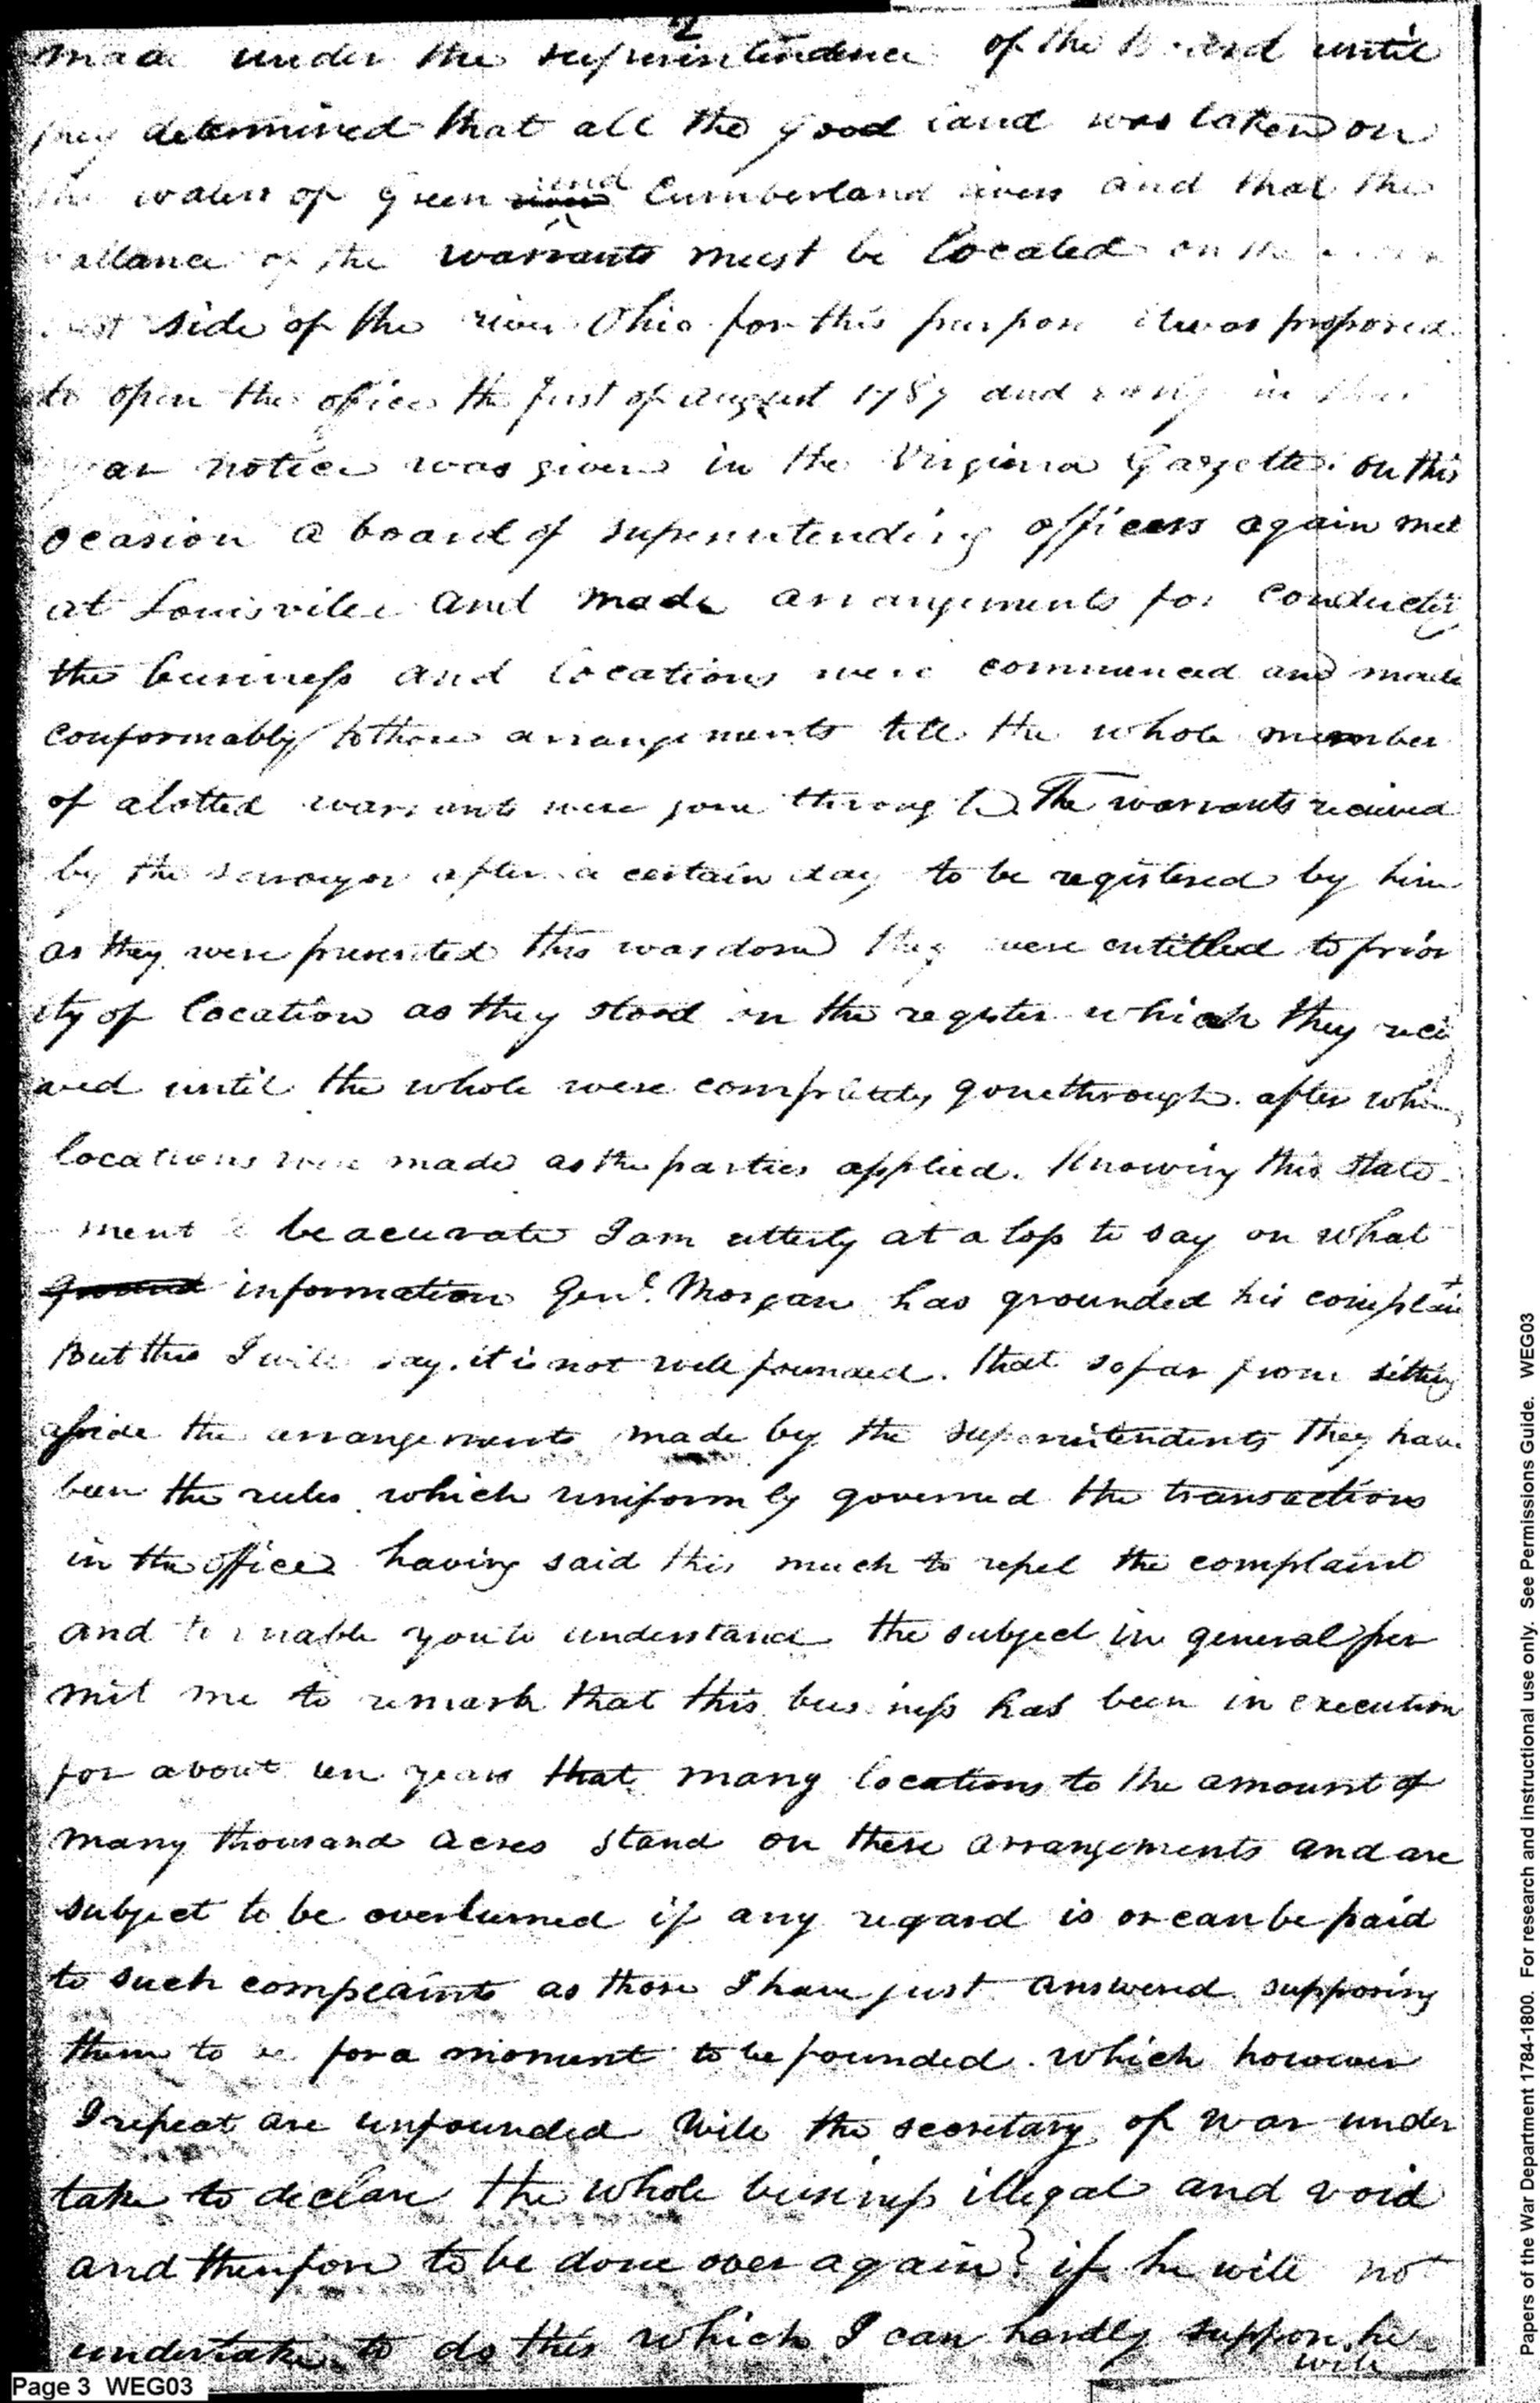 2
made under the superintendence of the Board until
they determined that all the good land was taken on
the waters of Green river and Cumberland rivers and that the
ballance of the warrants must be located on the
west side of the river Ohio for this purpose it was proposed
to open the office the first of august 1787 and early in that
year notice was given in the Virginia Gazette. on this
ocasion a board of superintending officers again met
at Louisville and made arrangements for conducting
the business and locations were commenced and made
conformably to those arrangements till the whole number
of alotted warrants were gone through. The warrants received
by the surveyor after a certain day to be registered by him
as they were presented this was done they were entitled to prior
ity of location as they stood in the register which they recei
aved until the whole were completely gone through. after which
locations were made as the parties applied. Knowing this state
ment to be acurate I am utterly at a loss to say on what
ground information Genl. Morgan has grounded his complaint
But this I will say. it is not well founded. that so far from setting
aside the arrangements made by the superintendents they have
been the rules which uniformly governed the transactions
in the office having said this much to repel the complaint
and to enable you to understand the subject in general per
mit me to remark that this business has been in execution
for about ten years that many locations to the amount of
many thousand acres stand on these arrangements and are
subject to be overturned if any regard is or can be paid
to such complaints as those I have just answered supposing
them to be for a moment to be founded. which however
I repeat are unfounded Will the secretary of war under
take to declare the whole business illegal and void
and therefore to be done over again? if he will not
undertake to do this which I can hardly suppose, he
will
Page 3 WEG03
Papers of the War Department 1784-1800. For research and instructional use only. See Permissions Guide. WEG03